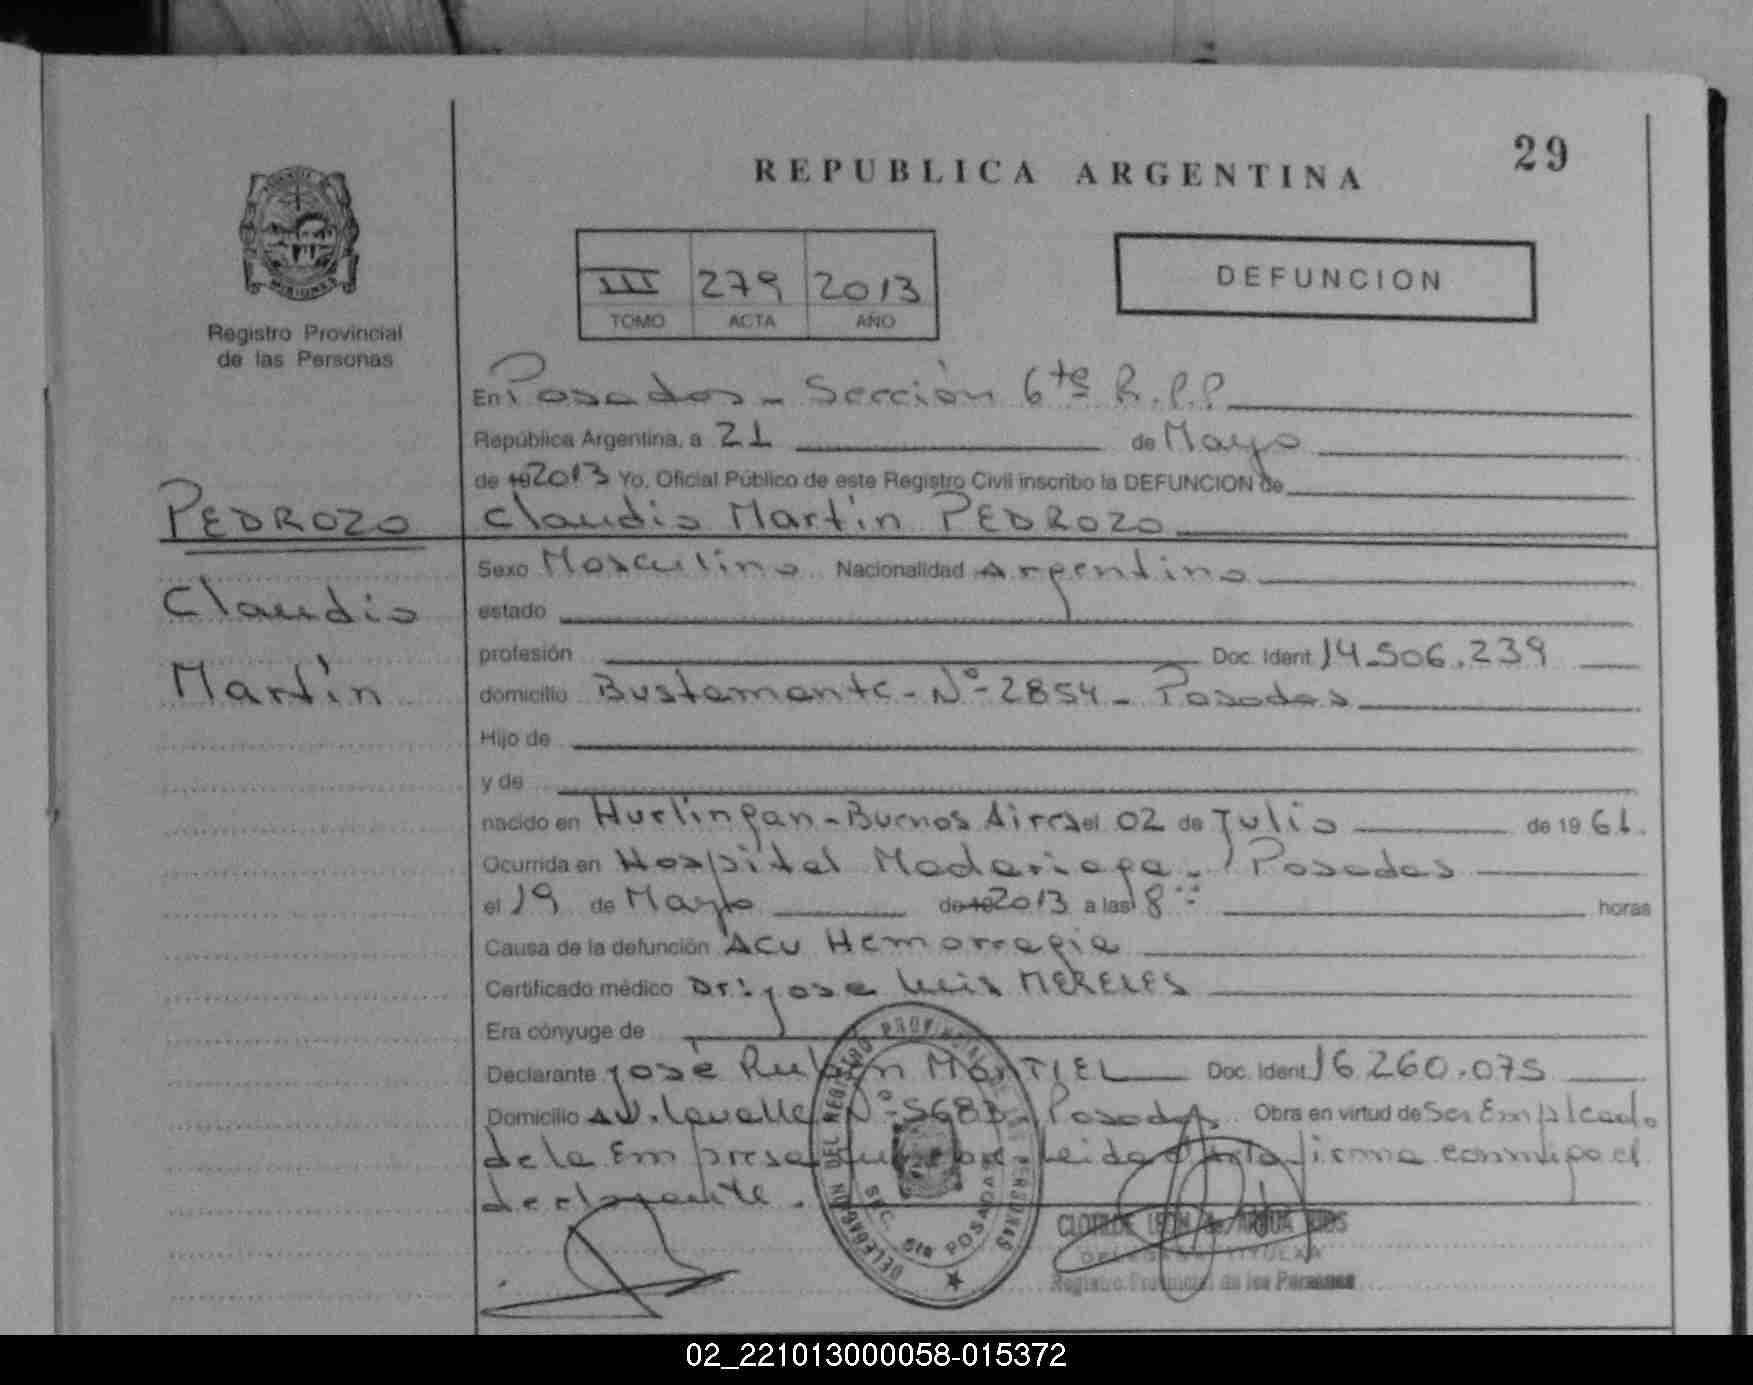 29
REPUBLICA ARGENTINA
Registro Provincial
de las Personas
III 279 2013
TOMO ACTA AÑO
DEFUNCION
En Posadas - Sección 6ta R.P.P
República Argentina, a 21 de Mayo
de 19 2013 Yo, Oficial Público de este Registro Civil inscribo la DEFUNCION de
PEDROZO
Claudio
Martín
Claudio Martín PEDROZO
Sexo Masculino Nacionalidad Argentino
estado
profesión Doc. Ident. 14.506.239
domicilio Bustamante - Nº - 2854 - Posadas
Hijo de
y de
nacido en Hurlingan - Buenos Aires el 02 de Julio de 19 61.
Ocurrida en Hospital Madariaga - Posadas
el 19 de Mayo de 19 2013 a las 8 horas
Causa de la defunción ACV Hemorragia
Certificado médico Dr: José Luis MERELES
Era cónyuge de
Declarante José Rubén MONTIEL Doc. Ident. 16.260.075
Domicilio AV. Lavalle Nº - 5683 - Posadas Obra en virtud de Ser Empleado
de la Empresa Leida Acta firma conmigo el
declarante.
DELEGACION DEL REGISTRO PROVINCIAL DE LAS PERSONAS
SEC. 6ta POSADAS
Registro Provincial de las Personas
02_221013000058-015372